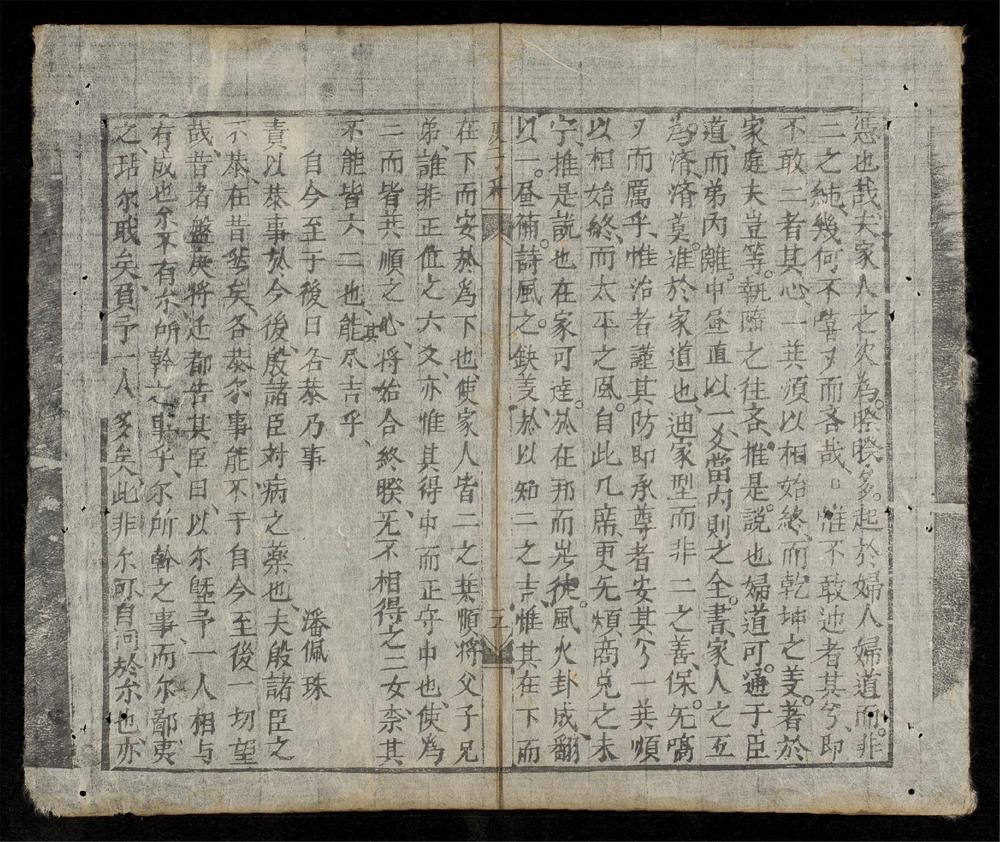 憑也哉夫家人之次為睽睽多起於婦人婦道而非
二之純幾何不嘗又而吝哉曰惟不敢迚者其兮即
不敢二者其心一共順以相始終而乾坤之美著於
家庭夫豈等執隨之往吝推是説也婦道可通于臣
道而弟內離中虛直以一爻當內則之全書家人之五
為濟濟莫進於家道也迪家型而非二之善保旡嗃
又而厲乎惟治者謹其防即承尊者安其兮一共順
以相始終而太平之風自此几席更旡煩商兑之未
宁推是説也在家可達於在邦而㞷徒風火卦成翻
以一昼補詩風之鈌美於以知二之吉惟其在下而
五
在下而安於為下也使家人皆二之共順將父子兄
弟誰非正位之六爻亦惟其得中而正守中也使為
二而皆共順之心將始合終睽旡不相得之二女柰其
不能皆六二也其能尽吉乎
自今至于後日各恭乃事 潘佩珠
責以恭事於今後殷諸臣对病之薬也夫殷諸臣之
不恭在昔㳒矣各恭尔事能不于自今至後一切望
哉昔者盤庚將迁都告其臣曰以尔曁予一人相与
有成也尔不有尔所幹之事乎尔所幹之事而尔鄙夷
之玷尔戝矣負予一人多矣此非尔可自同於尔也亦